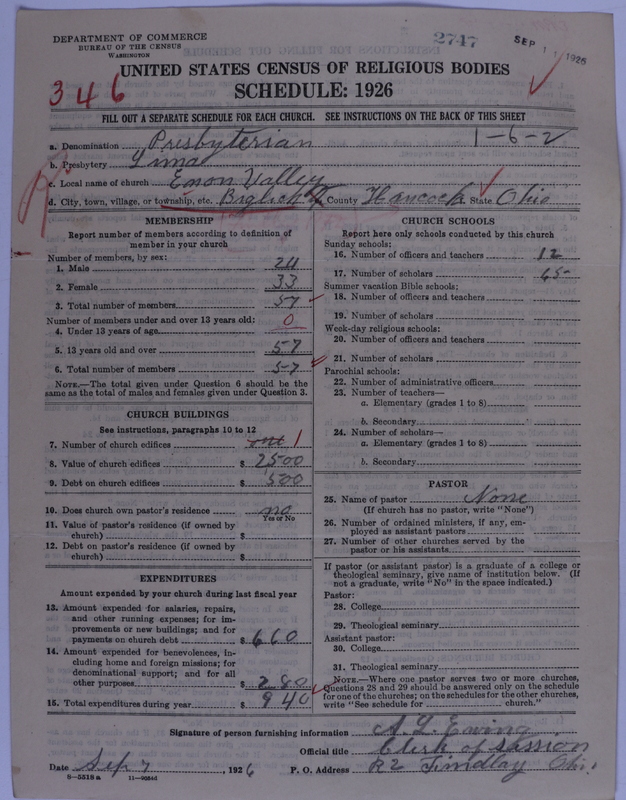 DEPARTMENT OF COMMERCE
BUREAU OF THE CENSUS
WASHINGTON
2747
SEP 11 1926
UNITED STATES CENSUS OF RELIGIOUS BODIES
SCHEDULE: 1926
346
FILL OUT A SEPARATE SCHEDULE FOR EACH CHURCH. SEE INSTRUCTIONS ON THE BACK OF THIS SHEET
a. Denomination Presbyterian 1-6-2
b. Presbytery Lima
c. Local name of church Enon Valley
d. City, town, village, or township, etc. County Hancock State Ohio
MEMBERSHIP
Report number of members according to definition of member in your church
Number of members, by sex:
1. Male 24
2. Female 33
3. Total number of members 57
Number of members under and over 13 years old:
4. Under 13 years of age 0
5. 13 years old and over 57
6. Total number of members 57
NOTE.—The total given under Question 6 should be the same as the total of males and females given under Question 3.
CHURCH BUILDINGS
See instructions, paragraphs 10 to 12
7. Number of church edifices one 1
8. Value of church edifices $ 2500
9. Debt on church edifices $ 500
10. Does church own pastor's residence no
Yes or No
11. Value of pastor's residence (if owned by church) $
12. Debt on pastor's residence (if owned by church) $
EXPENDITURES
Amount expended by your church during last fiscal year
13. Amount expended for salaries, repairs, and other running expenses; for improvements or new buildings; and for payments on church debt $ 660
14. Amount expended for benevolences, including home and foreign missions; for denominational support; and for all other purposes $ 280
15. Total expenditures during year $ 940
CHURCH SCHOOLS
Report here only schools conducted by this church
Sunday schools:
16. Number of officers and teachers 12
17. Number of scholars 65
Summer vacation Bible schools:
18. Number of officers and teachers
19. Number of scholars
Week-day religious schools:
20. Number of officers and teachers
21. Number of scholars
Parochial schools:
22. Number of administrative officers
23. Number of teachers—
a. Elementary (grades 1 to 8)
b. Secondary
24. Number of scholars—
a. Elementary (grades 1 to 8)
b. Secondary
PASTOR
25. Name of pastor None
(If church has no pastor, write "None")
26. Number of ordained ministers, if any, employed as assistant pastors
27. Number of other churches served by the pastor or his assistants
If pastor (or assistant pastor) is a graduate of a college or theological seminary, give name of institution below. (If not a graduate, write "No" in the space indicated.)
Pastor:
28. College
29. Theological seminary
Assistant pastor:
30. College
31. Theological seminary
NOTE.—Where one pastor serves two or more churches, Questions 28 and 29 should be answered only on the schedule for one of the churches; on the schedules for the other churches, write "See schedule for church."
Signature of person furnishing information A L Ewing
Official title Clerk of Session
Date Sep 7, 1926 P. O. Address R2 Findlay Ohio
8-5518a 11-9054d